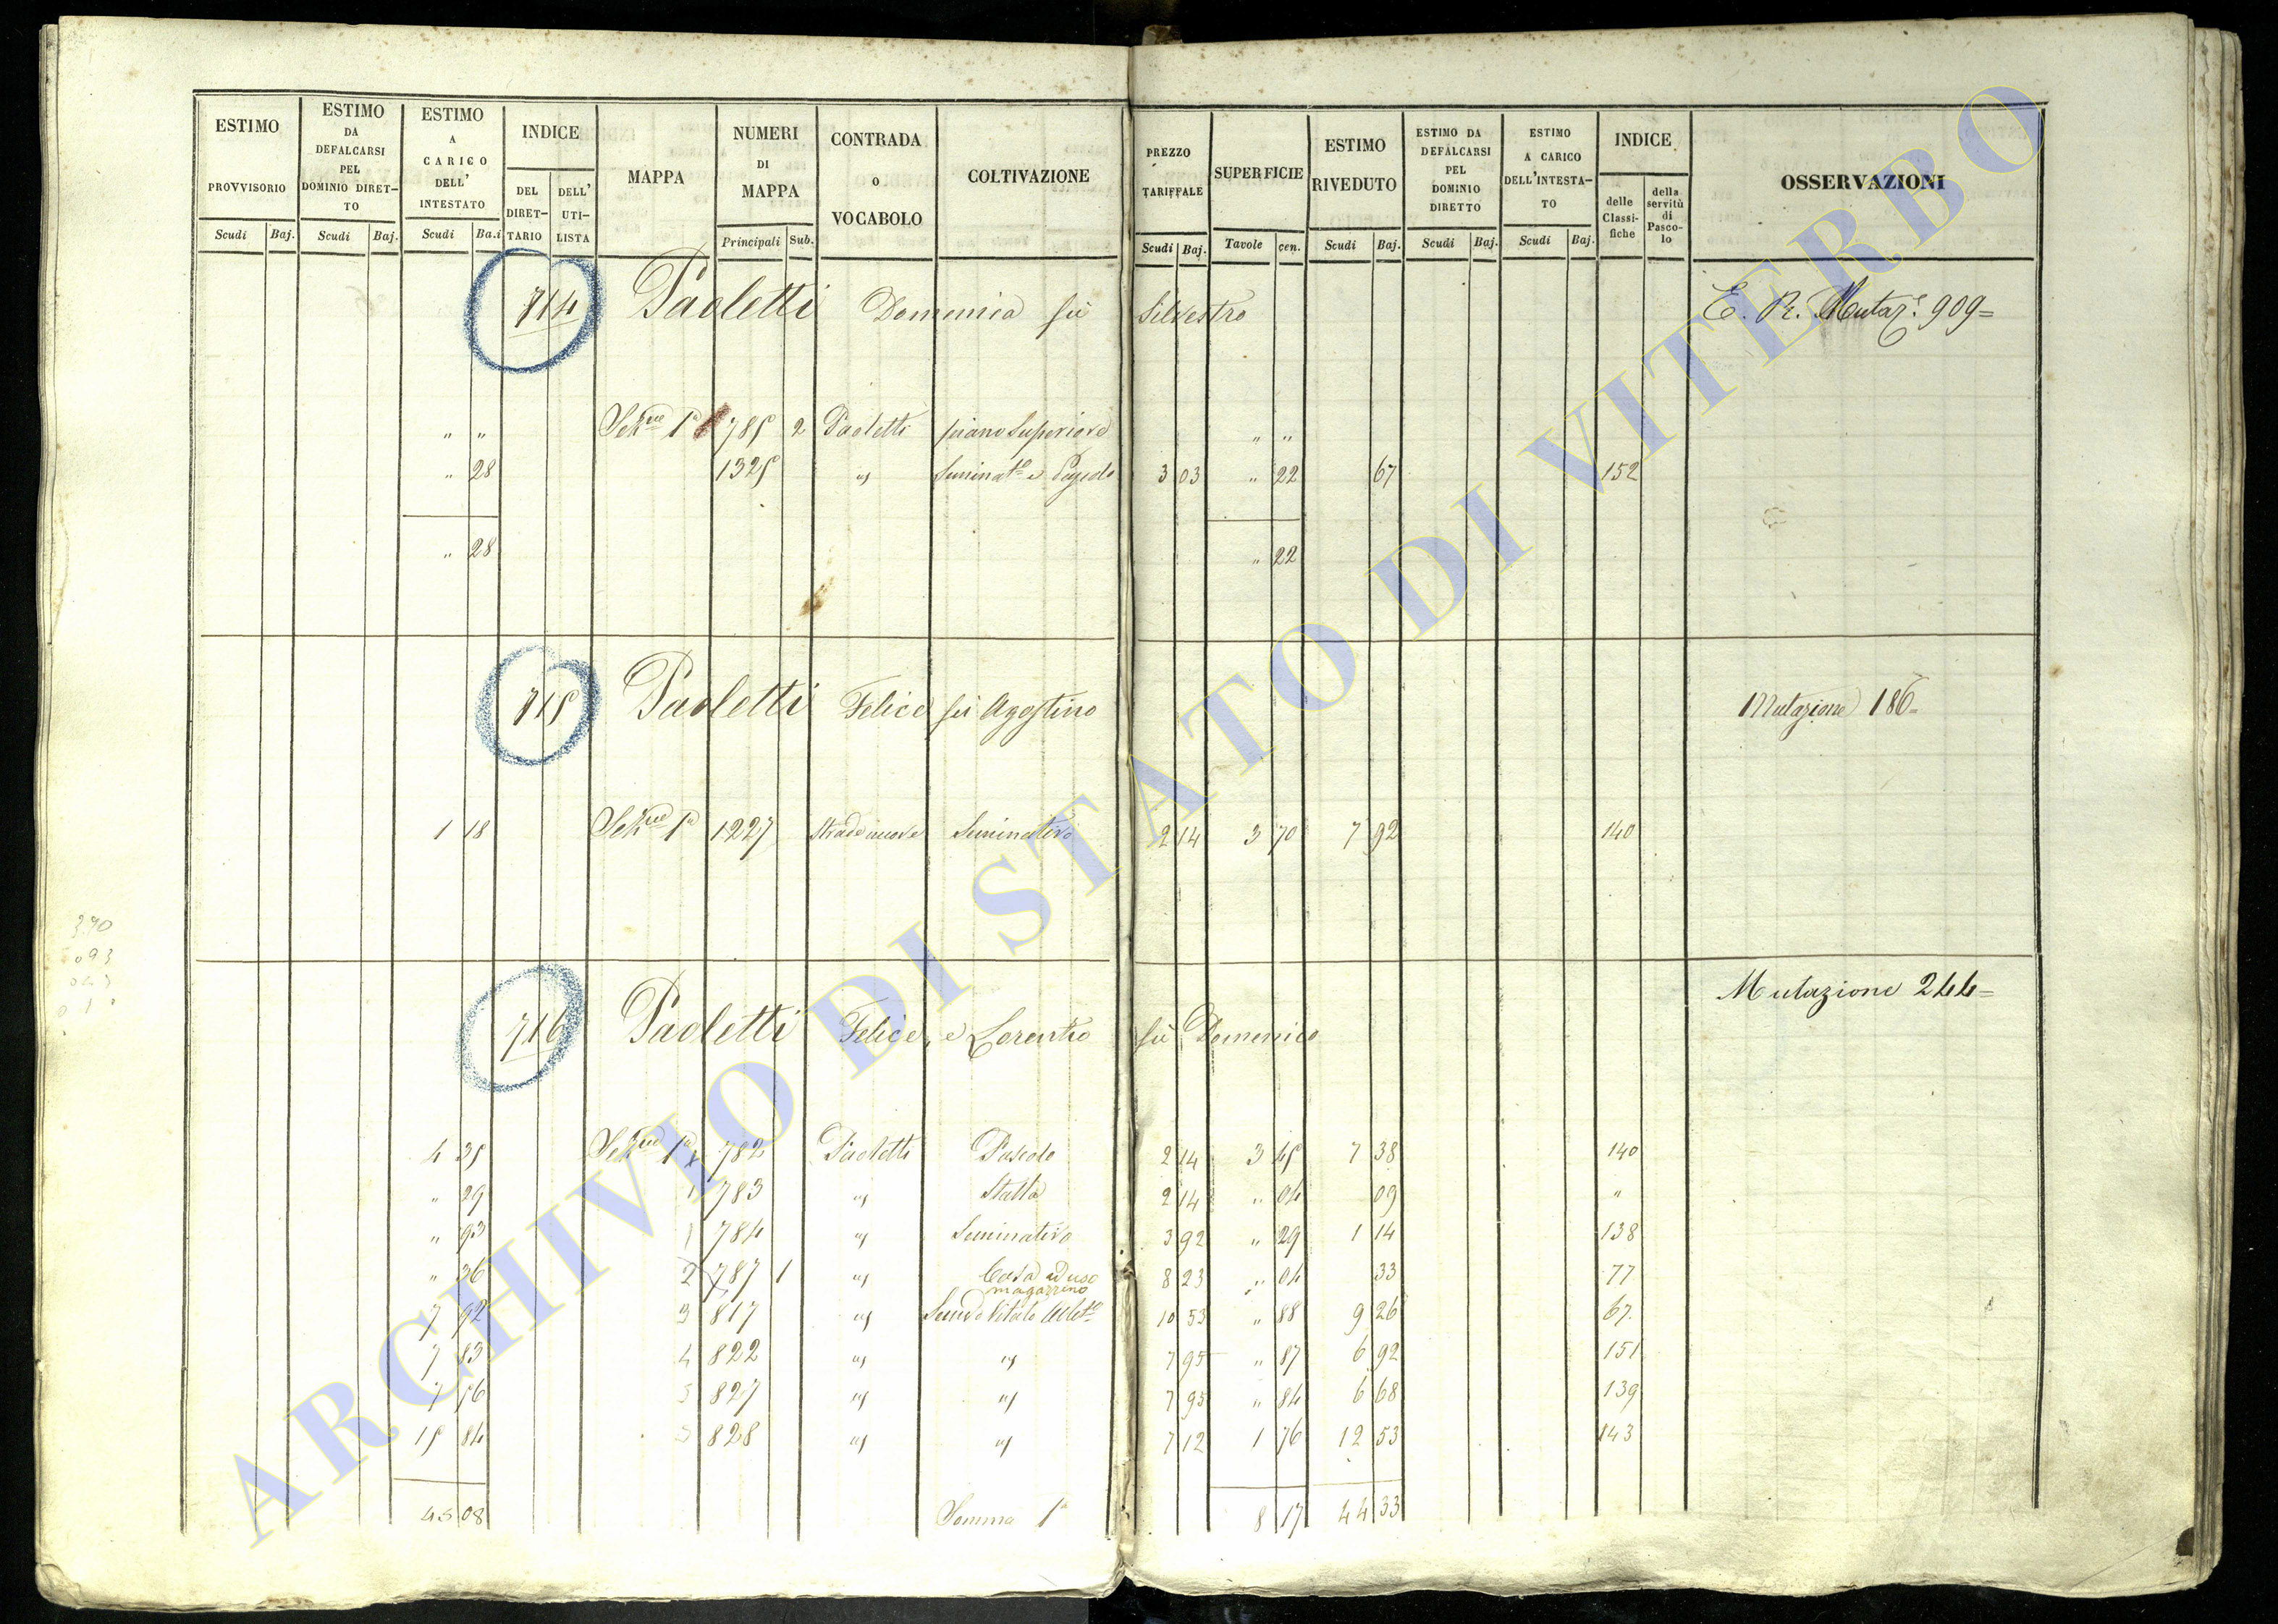 ESTIMO PROVVISORIO Scudi Baj.
ESTIMO DA DEFALCARSI PEL DOMINIO DIRET-TO Scudi Baj.
ESTIMO A CARICO DELL' INTESTATO Scudi Ba.i
INDICE DEL DIRET-TARIO DELL' UTI-LISTA
MAPPA
NUMERI DI MAPPA Principali Sub.
CONTRADA O VOCABOLO
COLTIVAZIONE
PREZZO TARIFFALE Scudi Baj.
SUPERFICIE Tavole cen.
ESTIMO RIVEDUTO Scudi Baj.
ESTIMO DA DEFALCARSI PEL DOMINIO DIRETTO Scudi Baj.
ESTIMO A CARICO DELL'INTESTA-TO Scudi Baj.
INDICE delle Classi-fiche della servitù di Pasco-lo
OSSERVAZIONI
714 Paoletti Domenica fù Silvestro E. R. Mutaz.e 909=
" " Sez.ne 1a 785 2 Paoletti piano Superiore " "
" 28 1325 " Seminat.o e 3 03 " 22 67 152
" 28 " 22
715 Paoletti Felice fù Agostino Mutazione 186=
1 18 Sez.ne 1a 1227 Strade nuove Seminativo 2 14 3 70 7 92 140
Mutazione 244=
716 Paoletti Felice, e Lorenzo fù Domenico
4 35 Sez.ne 1a 782 Paoletti Pascolo 2 14 3 45 7 38 140
" 29 1 783 " Stalla 2 14 " 04 09 "
" 93 1 784 " Seminativo 3 92 " 29 1 14 138
" 36 2 787 1 " Casa ad uso magazzino 8 23 " 04 33 77
7 92 3 817 " Sem.o Vitato 10 53 " 88 9 26 67.
7 83 4 822 " " 7 95 " 87 6 92 151
7 56 5 827 " " 7 95 " 84 6 68 139
15 84 5 828 " " 7 12 1 76 12 53 143
45 08 Somma 1a 8 17 44 33
390
093
ARCHIVIO DI STATO DI VITERBO